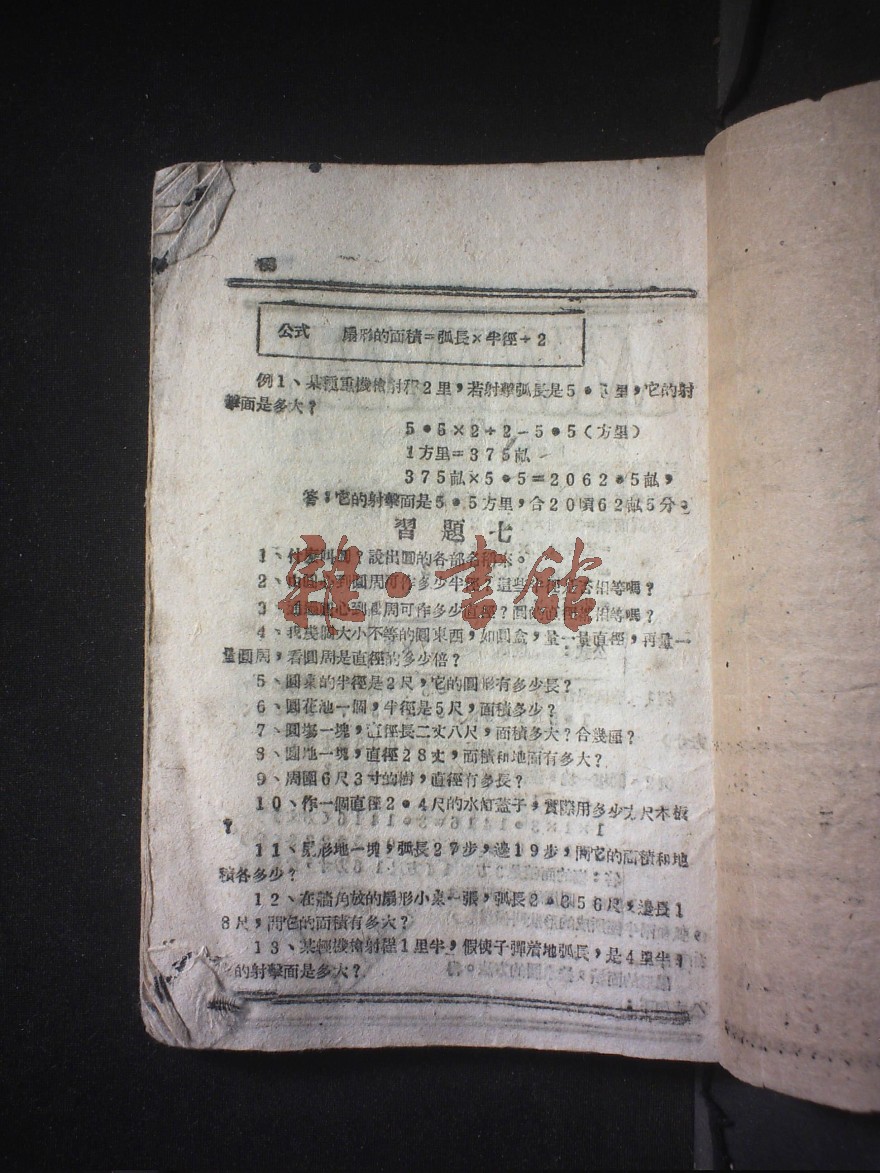 公式　扇形的面積＝弧長×半徑÷2
例1、某種重機槍射程2里，若射擊弧長是5•5里，它的射
擊面是多大？
5•5×2÷2＝5•5（方里）
1方里＝375畝
375畝×5•5＝2062•5畝，
答：它的射擊面是5•5方里，合20頃62畝5分。
習題七
1、什麼叫圓？說出圓的各部名稱來。
2、由圓心到圓周可作多少半徑？這些半徑是否相等嗎？
3、通過圓心到圓周可作多少直徑？圓的直徑都相等嗎？
4、找幾個大小不等的圓東西，如圓盒，量一量直徑，再量一
量圓周，看圓周是直徑的多少倍？
5、圓桌的半徑是2尺，它的圓形有多少長？
6、圓花池一個，半徑是5尺，面積多少？
7、圓場一塊，直徑長二丈八尺，面積多大？合幾厘？
8、圓地一塊，直徑28丈，面積和地面有多大？
9、周圍6尺3寸的樹，直徑有多長？
10、作一個直徑2•4尺的水缸蓋子，實際用多少方尺木板
？
11、扇形地一塊，弧長27步，邊19步，問它的面積和地
積各多少？
12、在牆角放的扇形小桌一張，弧長2•856尺，邊長1
8尺，問它的面積有多大？
13、某輕機槍射程1里半，假使子彈着地弧長，是4里半，
的射擊面是多大？
雜•書館